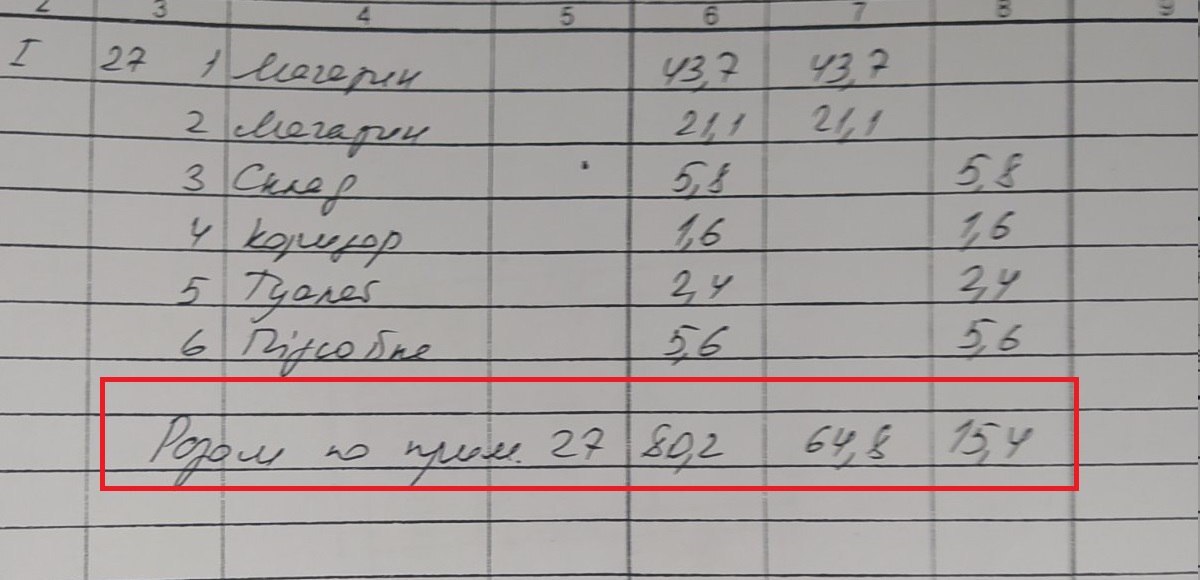 2 3 4 5 6 7 8 9
I 27 1 Магазин 43,7 43,7
2 Магазин 21,1 21,1
3 Склад 5,8 5,8
4 Коридор 1,6 1,6
5 Туалет 2,4 2,4
6 Підсобне 5,6 5,6
Разом по прим. 27 80,2 64,8 15,4